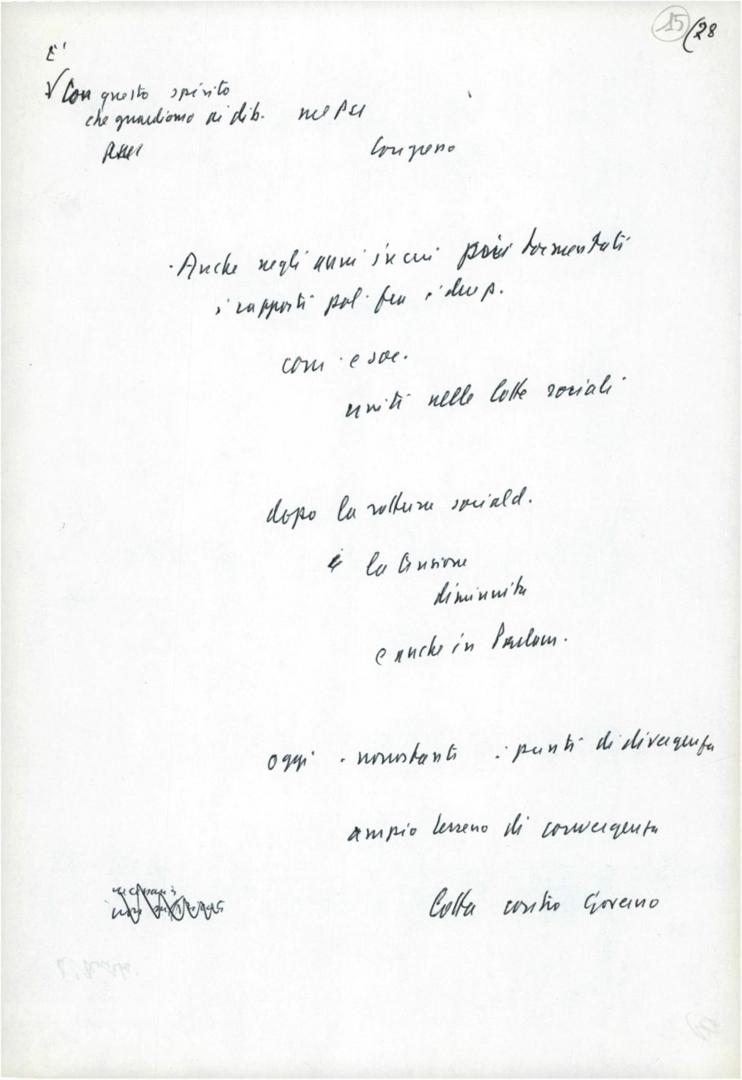 15 (28
E'
Con questo spirito
che guardiamo ai dib. nel PSI
Congresso
Anche negli anni in cui più tormentati
i rapporti pol. fra i due p.
com. e soc.
uniti nelle lotte sociali
dopo la rottura sociald.
la tensione
diminuita
e anche in Parlam.
oggi nonostanti i punti di divergenza
ampio terreno di convergenza
lotta contro Governo